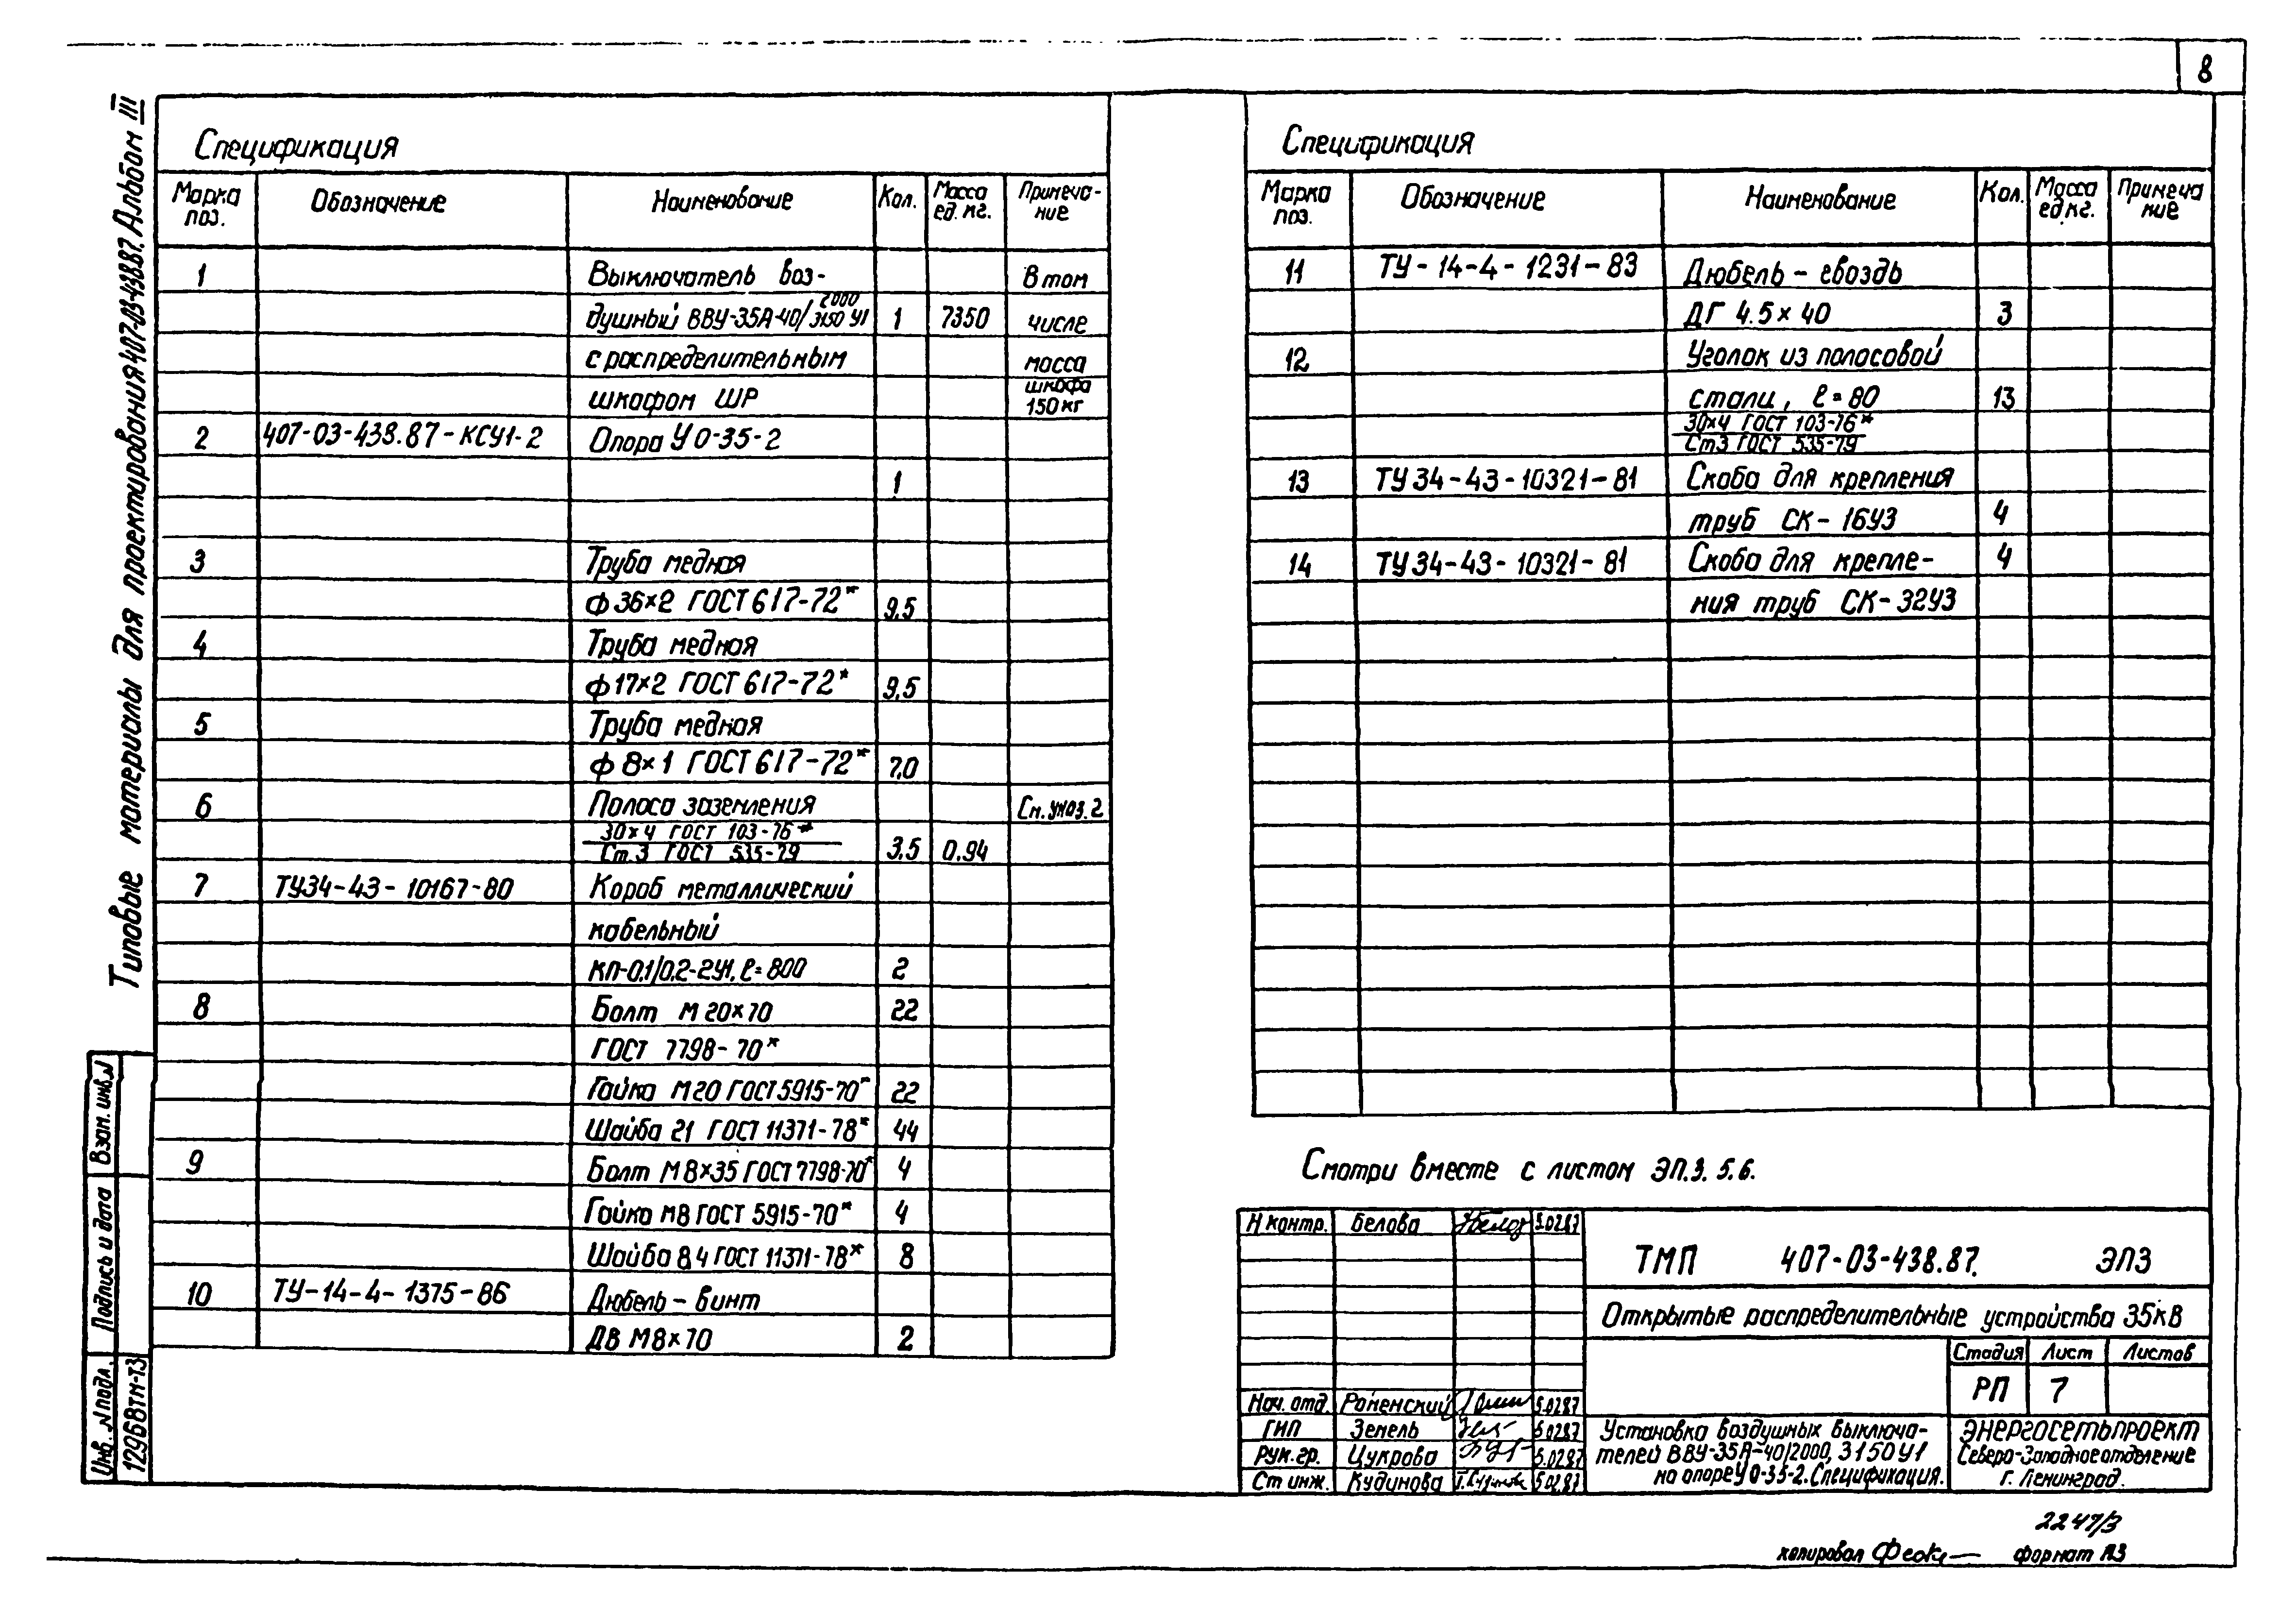 8
Типовые материалы для проектирования 407-03-438.87. Альбом III
Спецификация
Марка поз. Обозначение Наименование Кол. Масса ед. кг. Примеча-ние
1 Выключатель воз- В том
душный ВВУ-35А-40/2000/3150 У1 1 7350 числе
с распределительным масса
шкафом ШР шкафа 150 кг
2 407-03-438.87-КСУ1-2 Опора УО-35-2
1
3 Труба медная
ф 36×2 ГОСТ 617-72* 9,5
4 Труба медная
ф 17×2 ГОСТ 617-72* 9,5
5 Труба медная
ф 8×1 ГОСТ 617-72* 7,0
6 Полоса заземления См. указ. 2
30×4 ГОСТ 103-76*
Ст.3 ГОСТ 535-79 3,5 0,94
7 ТУ34-43-10167-80 Короб металлический
кабельный
КП-0,1/0,2-2У1, ℓ=800 2
8 Болт М 20×70 22
ГОСТ 7798-70*
Гайка М20 ГОСТ 5915-70* 22
Шайба 21 ГОСТ 11371-78* 44
9 Болт М8×35 ГОСТ 7798-70* 4
Гайка М8 ГОСТ 5915-70* 4
Шайба 8,4 ГОСТ 11371-78* 8
10 ТУ-14-4-1375-86 Дюбель-винт
ДВ М8×70 2
Спецификация
Марка поз. Обозначение Наименование Кол. Масса ед. кг. Примеча ние
11 ТУ-14-4-1231-83 Дюбель-гвоздь
ДГ 4.5×40 3
12 Уголок из полосовой
стали, ℓ=80 13
30×4 ГОСТ 103-76*
Ст3 ГОСТ 535-79
13 ТУ 34-43-10321-81 Скоба для крепления
труб СК-16У3 4
14 ТУ 34-43-10321-81 Скоба для крепле- 4
ния труб СК-32У3
Смотри вместе с листом ЭП.3. 5.6.
Н контр. Белова 5.02.87
ТМП 407-03-438.87. ЭП3
Открытые распределительные устройства 35кВ
Стадия Лист Листов
РП 7
Нач. отд. Роменский 5.02.87
ГИП Земель 5.02.87
Рук. гр. Цукрова 5.02.87
Ст инж. Кудинова 5.02.87
Установка воздушных выключа-
телей ВВУ-35А-40/2000, 3150У1
на опоре УО-35-2. Спецификация.
ЭНЕРГОСЕТЬПРОЕКТ
Северо-Западное отделение
г. Ленинград.
Взам. инв. N
Подпись и дата
Инв. N подл.
12968тм-т3
2247/3
копировал формат А3